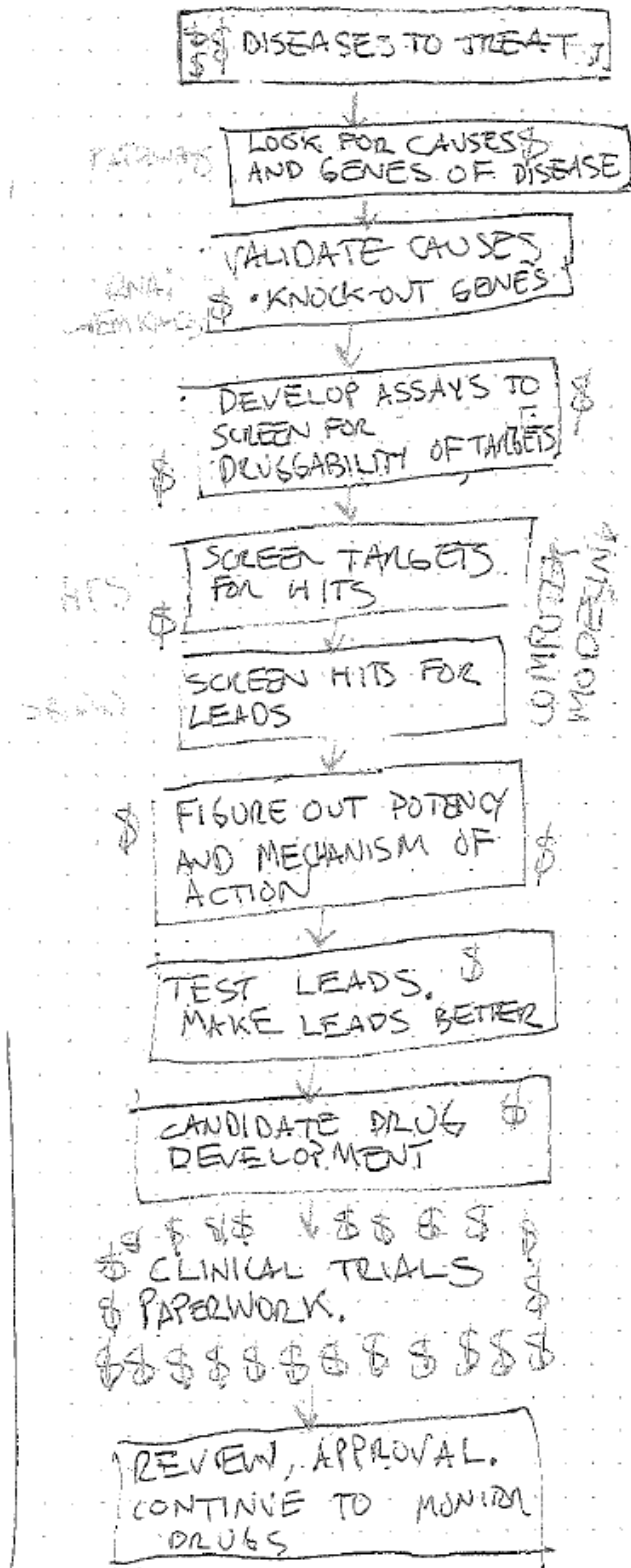 $$ DISEASES TO TREAT
$$
PATHWAYS
LOOK FOR CAUSES $
AND GENES OF DISEASE
VALIDATE CAUSES
$ • KNOCK-OUT GENES
RNAi
DEVELOP ASSAYS TO
SCREEN FOR
DRUGGABILITY OF TARGETS
$
$
SCREEN TARGETS
FOR HITS
HTS
$
COMPUTER
MODELING
SCREEN HITS FOR
LEADS
$
FIGURE OUT POTENCY
AND MECHANISM OF
ACTION
$
TEST LEADS. $
MAKE LEADS BETTER
CANDIDATE DRUG $
DEVELOPMENT
$ $ $ $ $ $ $ $ $
$ CLINICAL TRIALS
$ PAPERWORK. $ $
$ $ $ $ $ $ $ $ $ $ $ $
REVIEW, APPROVAL.
CONTINUE TO MONITOR
DRUGS